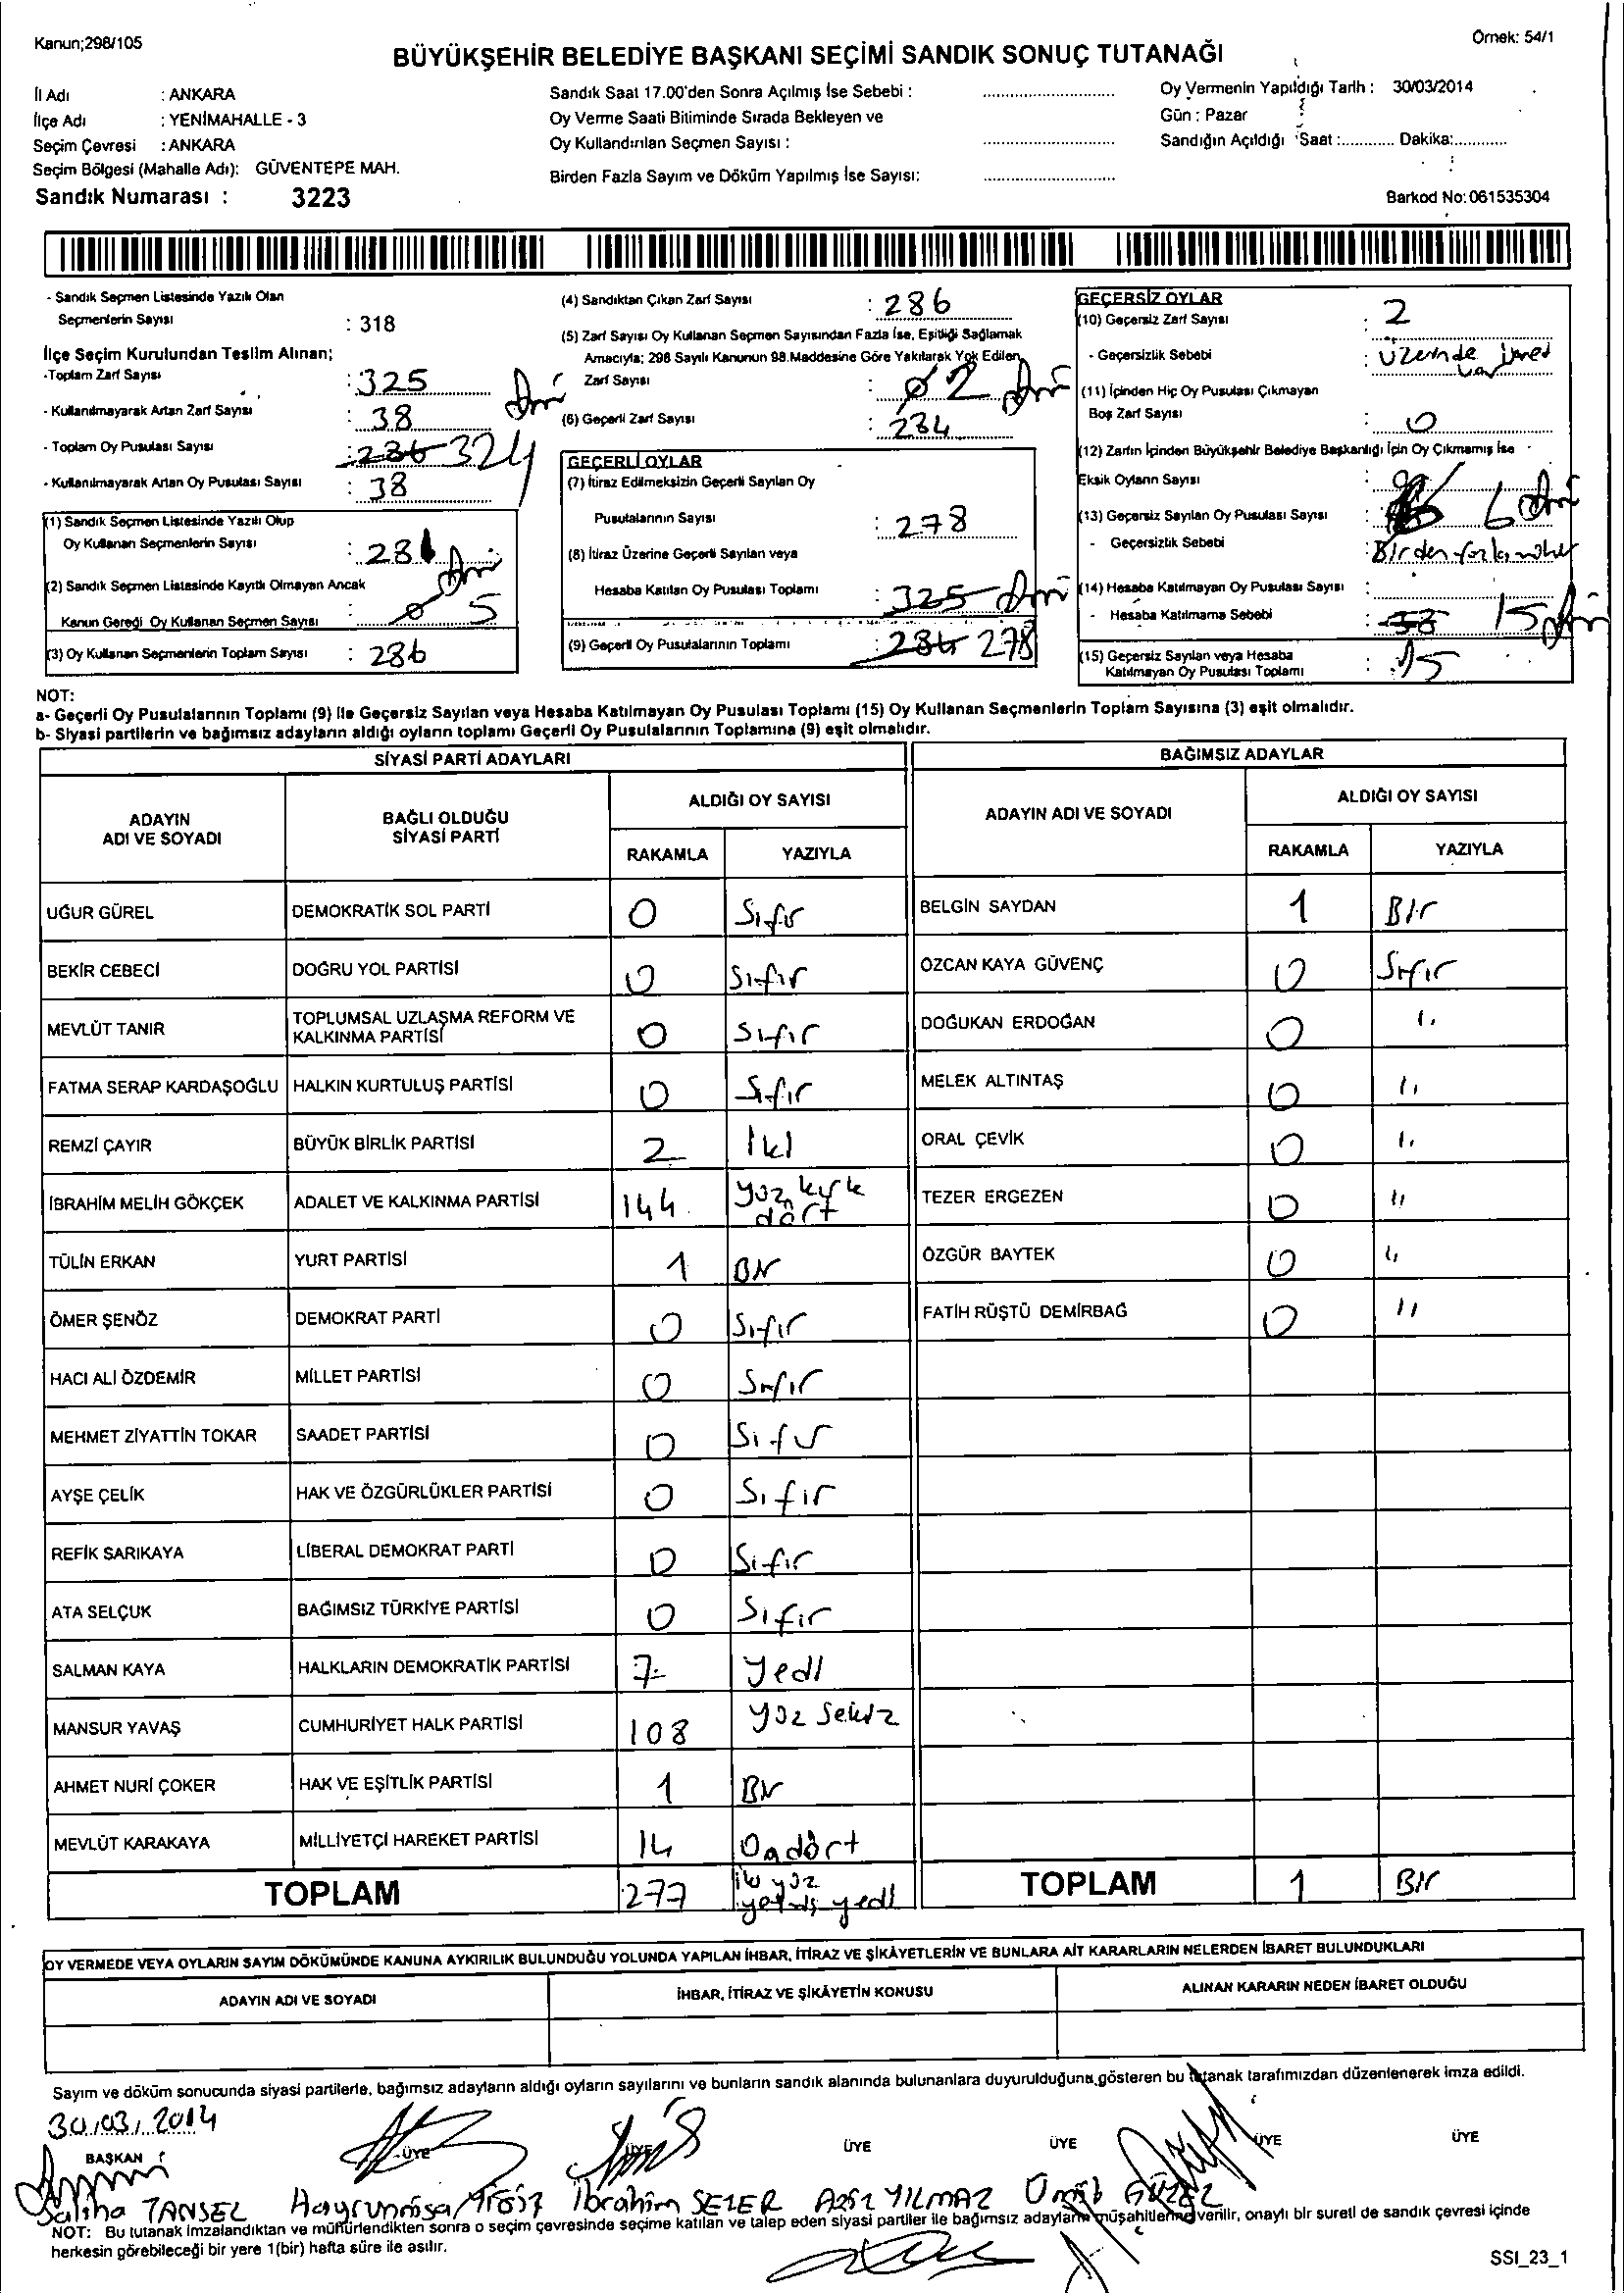 Kanun;298/105
Örnek: 54/1
BÜYÜKŞEHİR BELEDİYE BAŞKANI SEÇİMİ SANDIK SONUÇ TUTANAĞI
İl Adı : ANKARA
İlçe Adı : YENİMAHALLE - 3
Seçim Çevresi : ANKARA
Seçim Bölgesi (Mahalle Adı): GÜVENTEPE MAH.
Sandık Numarası : 3223
Sandık Saat 17.00'den Sonra Açılmış İse Sebebi :
Oy Verme Saati Bitiminde Sırada Bekleyen ve
Oy Kullandırılan Seçmen Sayısı :
Birden Fazla Sayım ve Döküm Yapılmış İse Sayısı:
Oy Vermenin Yapıldığı Tarih : 30/03/2014
Gün : Pazar
Sandığın Açıldığı Saat :............ Dakika:............
Barkod No:061535304
- Sandık Seçmen Listesinde Yazılı Olan
Seçmenlerin Sayısı : 318
İlçe Seçim Kurulundan Teslim Alınan;
-Toplam Zarf Sayısı : 325
- Kullanılmayarak Artan Zarf Sayısı : 38
- Toplam Oy Pusulası Sayısı : 286 324
- Kullanılmayarak Artan Oy Pusulası Sayısı : 38
(1) Sandık Seçmen Listesinde Yazılı Olup
Oy Kullanan Seçmenlerin Sayısı : 281
(2) Sandık Seçmen Listesinde Kayıtlı Olmayan Ancak
Kanun Gereği Oy Kullanan Seçmen Sayısı : 0 5
(3) Oy Kullanan Seçmenlerin Toplam Sayısı : 286
(4) Sandıktan Çıkan Zarf Sayısı : 286
(5) Zarf Sayısı Oy Kullanan Seçmen Sayısından Fazla İse, Eşitliği Sağlamak
Amacıyla; 298 Sayılı Kanunun 98.Maddesine Göre Yakılarak Yok Edilen
Zarf Sayısı : 0 2
(6) Geçerli Zarf Sayısı : 284
GEÇERLİ OYLAR
(7) İtiraz Edilmeksizin Geçerli Sayılan Oy
Pusulalarının Sayısı : 278
(8) İtiraz Üzerine Geçerli Sayılan veya
Hesaba Katılan Oy Pusulası Toplamı : 325
(9) Geçerli Oy Pusulalarının Toplamı : 284 278
GEÇERSİZ OYLAR
(10) Geçersiz Zarf Sayısı : 2
- Geçersizlik Sebebi : üzerinde işaret
var
(11) İçinden Hiç Oy Pusulası Çıkmayan
Boş Zarf Sayısı : 0
(12) Zarfın İçinden Büyükşehir Belediye Başkanlığı İçin Oy Çıkmamış İse
Eksik Oyların Sayısı :
(13) Geçersiz Sayılan Oy Pusulası Sayısı : 6
- Geçersizlik Sebebi : Birden fazla mühür
(14) Hesaba Katılmayan Oy Pusulası Sayısı :
- Hesaba Katılmama Sebebi : 38 15
(15) Geçersiz Sayılan veya Hesaba
Katılmayan Oy Pusulası Toplamı : 15
NOT:
a- Geçerli Oy Pusulalarının Toplamı (9) ile Geçersiz Sayılan veya Hesaba Katılmayan Oy Pusulası Toplamı (15) Oy Kullanan Seçmenlerin Toplam Sayısına (3) eşit olmalıdır.
b- Siyasi partilerin ve bağımsız adayların aldığı oyların toplamı Geçerli Oy Pusulalarının Toplamına (9) eşit olmalıdır.
SİYASİ PARTİ ADAYLARI
BAĞIMSIZ ADAYLAR
ADAYIN
ADI VE SOYADI
BAĞLI OLDUĞU
SİYASİ PARTİ
ALDIĞI OY SAYISI
RAKAMLA YAZIYLA
ADAYIN ADI VE SOYADI
ALDIĞI OY SAYISI
RAKAMLA YAZIYLA
UĞUR GÜREL DEMOKRATİK SOL PARTİ 0 Sıfır BELGİN SAYDAN 1 Bir
BEKİR CEBECİ DOĞRU YOL PARTİSİ 0 Sıfır ÖZCAN KAYA GÜVENÇ 0 Sıfır
MEVLÜT TANIR TOPLUMSAL UZLAŞMA REFORM VE
KALKINMA PARTİSİ 0 Sıfır DOĞUKAN ERDOĞAN 0 "
FATMA SERAP KARDAŞOĞLU HALKIN KURTULUŞ PARTİSİ 0 Sıfır MELEK ALTINTAŞ 0 "
REMZİ ÇAYIR BÜYÜK BİRLİK PARTİSİ 2 İki ORAL ÇEVİK 0 "
İBRAHİM MELİH GÖKÇEK ADALET VE KALKINMA PARTİSİ 144 yüz kırk
dört TEZER ERGEZEN 0 "
TÜLİN ERKAN YURT PARTİSİ 1 Bir ÖZGÜR BAYTEK 0 "
ÖMER ŞENÖZ DEMOKRAT PARTİ 0 Sıfır FATİH RÜŞTÜ DEMİRBAĞ 0 "
HACI ALİ ÖZDEMİR MİLLET PARTİSİ 0 Sıfır
MEHMET ZİYATTİN TOKAR SAADET PARTİSİ 0 Sıfır
AYŞE ÇELİK HAK VE ÖZGÜRLÜKLER PARTİSİ 0 Sıfır
REFİK SARIKAYA LİBERAL DEMOKRAT PARTİ 0 Sıfır
ATA SELÇUK BAĞIMSIZ TÜRKİYE PARTİSİ 0 Sıfır
SALMAN KAYA HALKLARIN DEMOKRATİK PARTİSİ 7 Yedi
MANSUR YAVAŞ CUMHURİYET HALK PARTİSİ 108 yüz sekiz
AHMET NURİ ÇOKER HAK VE EŞİTLİK PARTİSİ 1 Bir
MEVLÜT KARAKAYA MİLLİYETÇİ HAREKET PARTİSİ 14 Ondört
TOPLAM 277 iki yüz
yetmiş yedi TOPLAM 1 Bir
OY VERMEDE VEYA OYLARIN SAYIM DÖKÜMÜNDE KANUNA AYKIRILIK BULUNDUĞU YOLUNDA YAPILAN İHBAR, İTİRAZ VE ŞİKÂYETLERİN VE BUNLARA AİT KARARLARIN NELERDEN İBARET BULUNDUKLARI
ADAYIN ADI VE SOYADI İHBAR, İTİRAZ VE ŞİKÂYETİN KONUSU ALINAN KARARIN NEDEN İBARET OLDUĞU
Sayım ve döküm sonucunda siyasi partilerle, bağımsız adayların aldığı oyların sayılarını ve bunların sandık alanında bulunanlara duyurulduğunu gösteren bu tutanak tarafımızdan düzenlenerek imza edildi.
30/03/2014
BAŞKAN ÜYE ÜYE ÜYE ÜYE ÜYE ÜYE
Saliha TANSEL Hayrunnisa İbrahim SEZER Aziz YILMAZ Ümit GÜZEL
NOT: Bu tutanak imzalandıktan ve mühürlendikten sonra o seçim çevresinde seçime katılan ve talep eden siyasi partiler ile bağımsız adayların müşahitlerine verilir, onaylı bir sureti de sandık çevresi içinde
herkesin görebileceği bir yere 1(bir) hafta süre ile asılır.
SSI_23_1